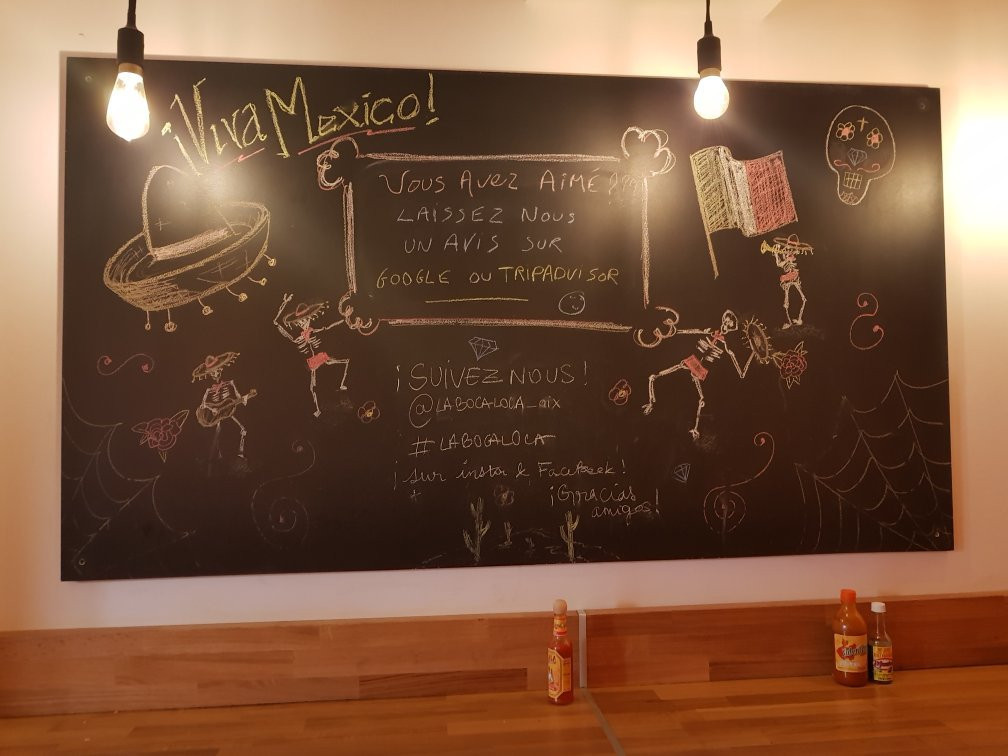 ¡Viva Mexico!
VOUS AVEZ AIMÉ ???
LAISSEZ NOUS
UN AVIS SUR
GOOGLE OU TRIPADVISOR
¡SUIVEZ NOUS!
@LABOCALOCA_aix
#LABOCALOCA
¡sur insta & Facebook!
¡Gracias
amigos!